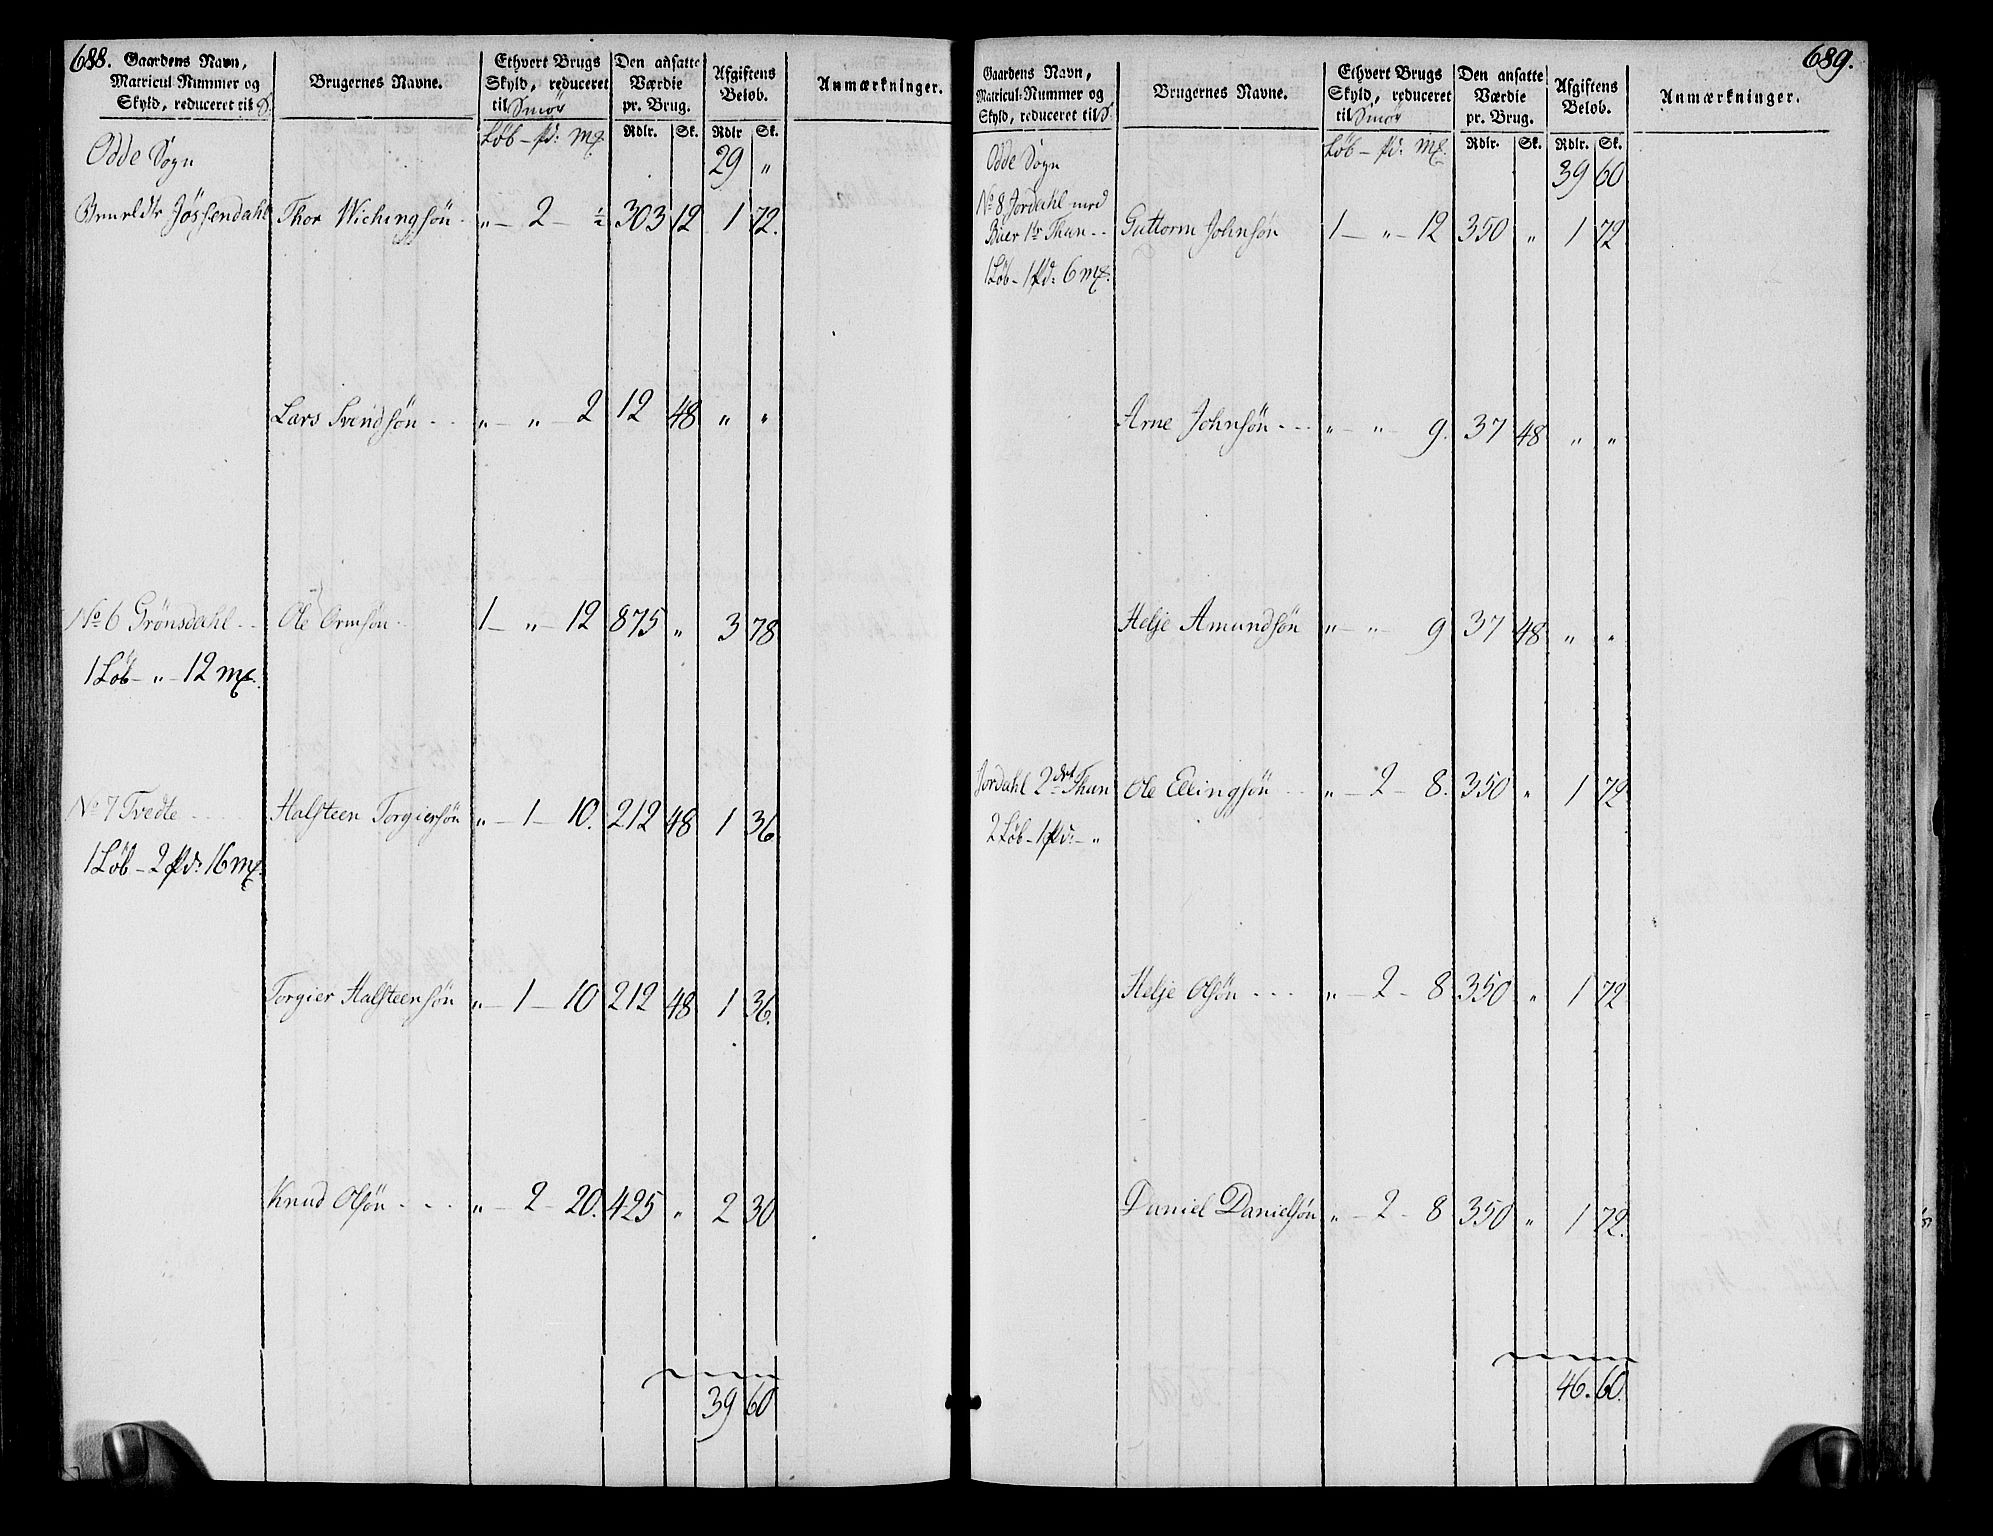 688.
Gaardens Navn, Matricul-Nummer og Skyld, reduceret til
Brugernes Navne.
Ethvert Brugs Skyld, reduceret til Smör
Den ansatte Værdie pr. Brug.
Afgiftens Beløb.
Anmærkninger.
Løb - pd: mk
Rdlr. Sk. Rdlr Sk.
Odde Sogn 29 „
Jössendahl Thor Wichingsön „ - 2 - ½ 303 12 1 72.
Lars Svendsön - - „ - „ - 2 12 48 „ „
No 6 Grönsdahl - - Ole Ormsön - 1 - „ - 12 875 „ 3 78
1 Løb - „ - 12 mk.
No 7 Tvedte - - - Halsteen Torgiersön „ - 1 - 10. 212 48 1 36
1 Løb - 2 pd: 16 mk.
Torgier Halsteensön „ - 1 - 10 212 48 1 36.
Knud Olsön - - - „ - 2 - 20. 425 „ 2 30
39 60
689.
Gaardens Navn, Matricul-Nummer og Skyld, reduceret til
Brugernes Navne.
Ethvert Brugs Skyld, reduceret til Smör
Den ansatte Værdie pr. Brug.
Afgiftens Beløb.
Anmærkninger.
Løb - pd: mk.
Rdlr. Sk. Rdlr. Sk.
Odde Sogn 39 60
No 8 Jordahl med
Buer 1te Thun - - Guttorm Johnsön 1 - „ - 12 350 „ 1 72
1 Løb - 1 pd: 6 mk.
Arne Johnsön - - - „ - „ - 9. 37 48 „ „
Helje Amundsön „ - „ - 9 37 48 „ „
Jordahl 2det Thun Ole Ellingsön - - „ - 2 - 8. 350 „ 1 72
2 Løb - 1 pd: - „
Helje Olsön - - - „ - 2 - 8 350 „ 1 72
Daniel Danielsön „ - 2 - 8 350 „ 1 72.
46. 60.